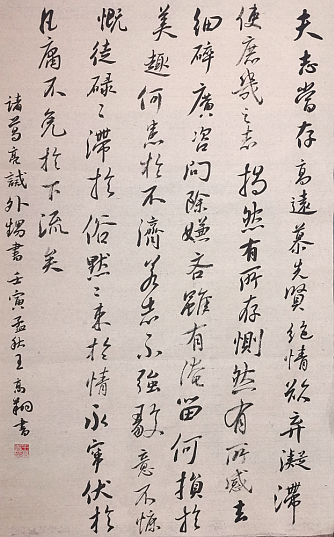 夫志當存高遠慕先賢絕情欲棄凝滯
使庶幾之志揭然有所存惻然有所感去
細碎廣咨問除嫌吝雖有淹留何損於
美趣何患於不濟若志不強毅意不慷
慨徒碌々滯於俗默々束於情永竄伏於
凡庸不免於下流矣
諸葛亮誡外甥書 壬寅孟秋王高翔書